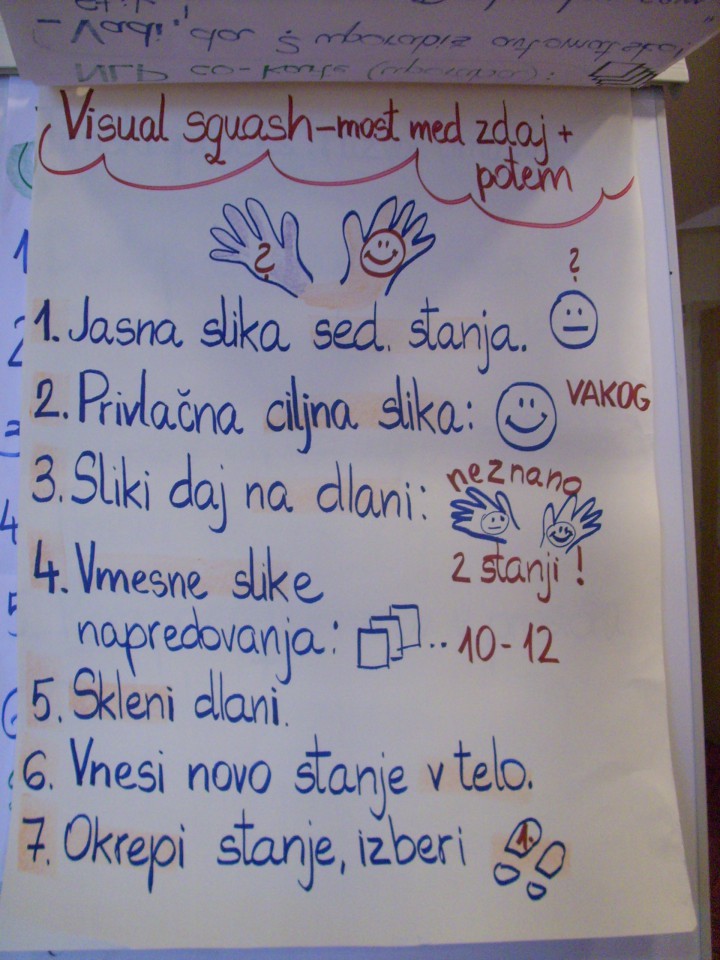 Visual squash-most med zdaj +
potem
?
?
1. Jasna slika sed. stanja.
2. Privlačna ciljna slika: VAKOG
3. Sliki daj na dlani: neznana
2 stanji!
4. Vmesne slike
napredovanja: .. 10-12
5. Skleni dlani.
6. Vnesi novo stanje v telo.
7. Okrepi stanje, izberi 1.